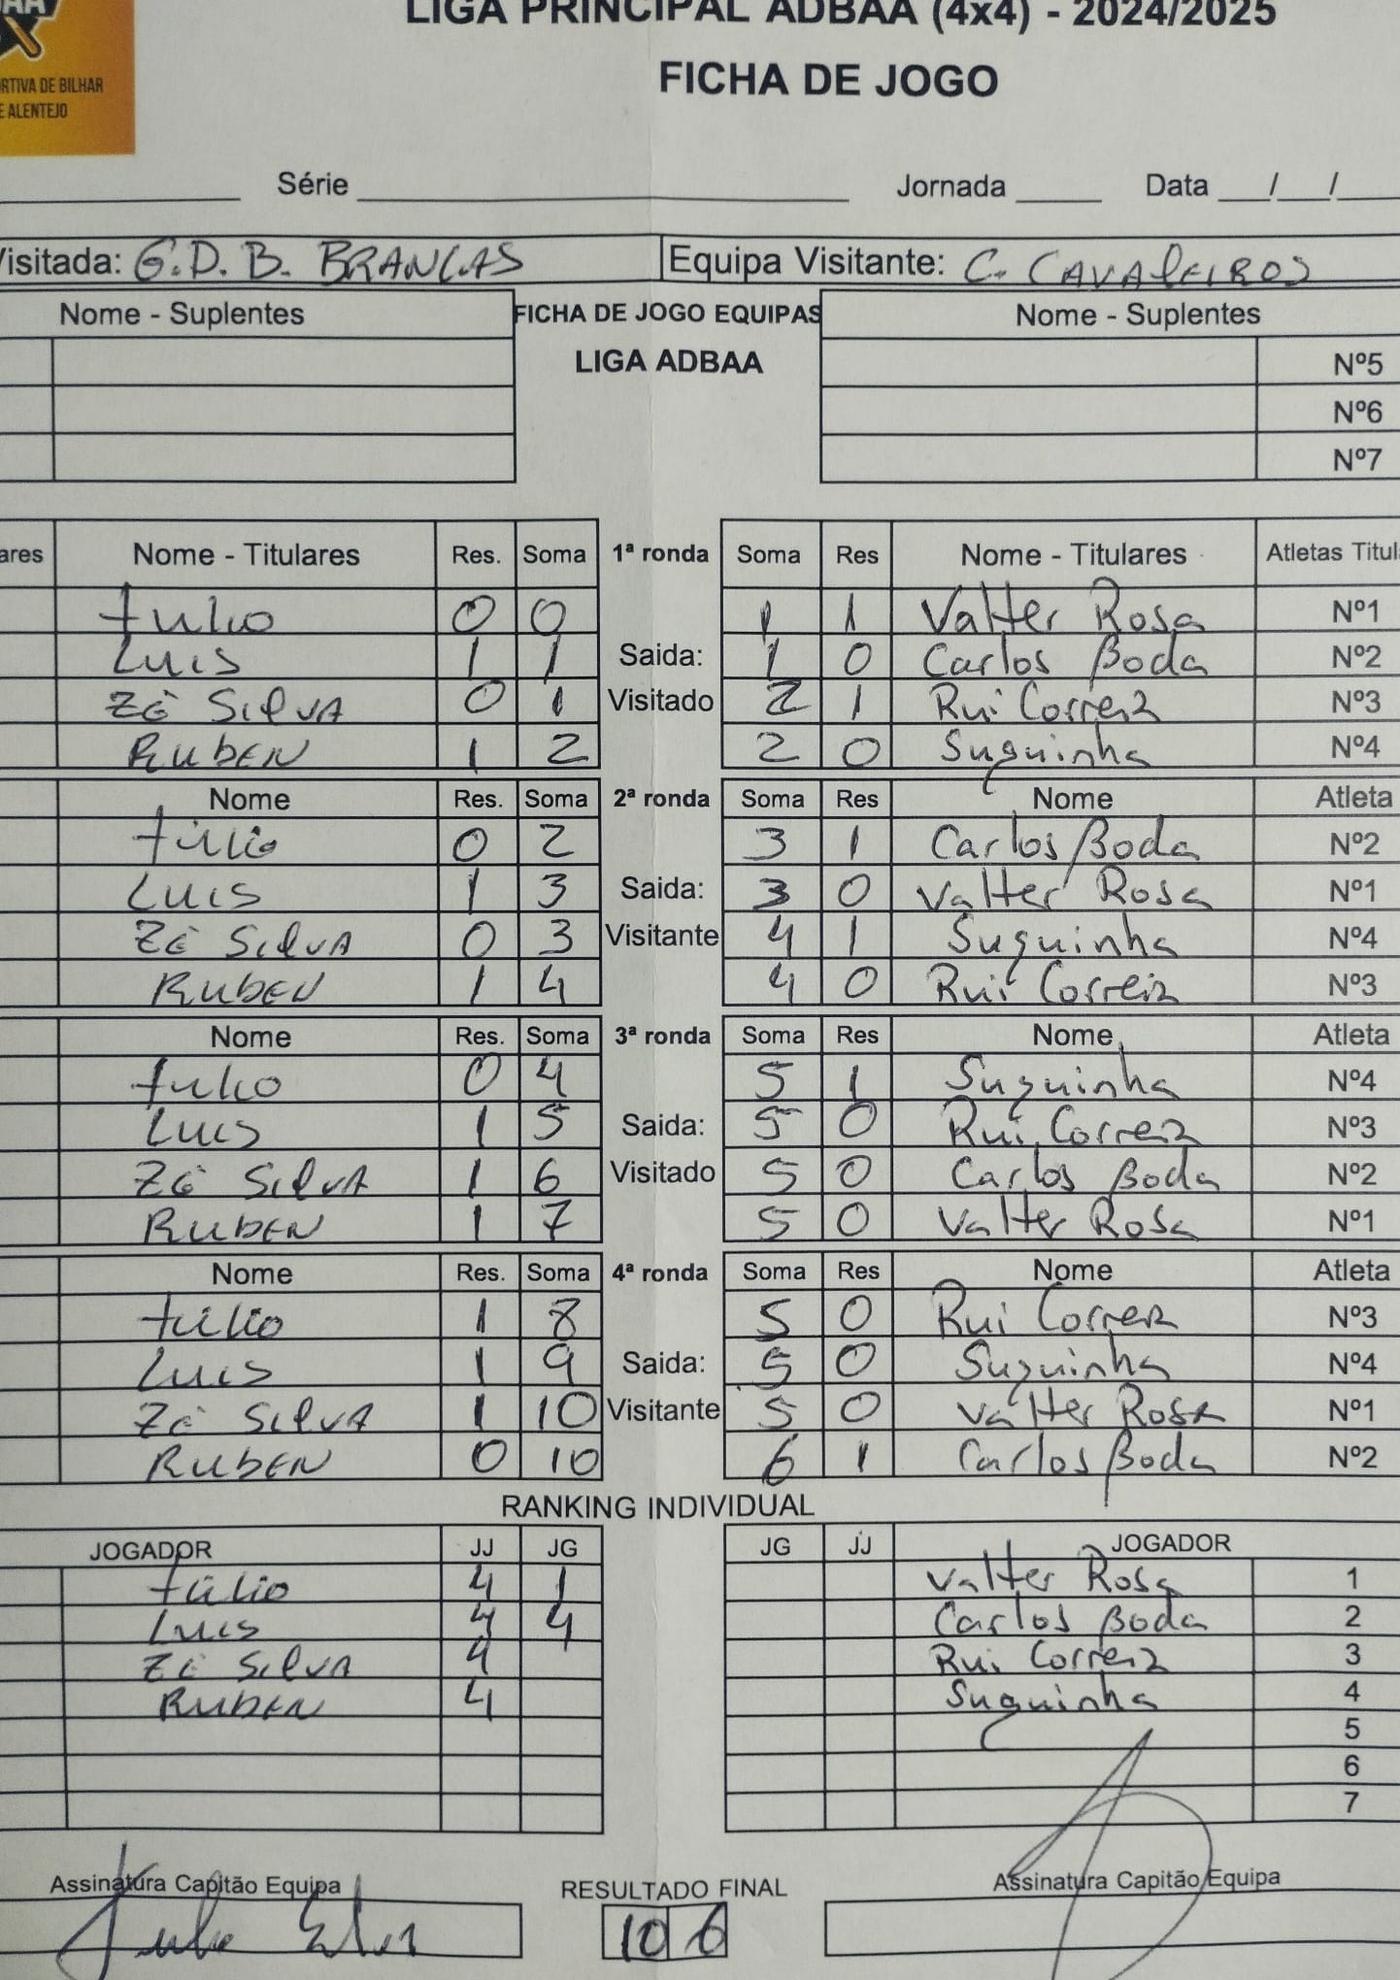 LIGA PRINCIPAL ADBAA (4x4) - 2024/2025
FICHA DE JOGO
RTIVA DE BILHAR
E ALENTEJO
Série Jornada Data / /
isitada: G.D. B. BRANCAS Equipa Visitante: C. CAVALEIROS
Nome - Suplentes FICHA DE JOGO EQUIPAS Nome - Suplentes
LIGA ADBAA Nº5
Nº6
Nº7
ares Nome - Titulares Res. Soma 1ª ronda Soma Res Nome - Titulares Atletas Titul
Tulio 0 0 1 1 Valter Rosa Nº1
Luis 1 1 Saida: 1 0 Carlos Boda Nº2
Zé Silva 0 1 Visitado 2 1 Rui Correia Nº3
Ruben 1 2 2 0 Suguinha Nº4
Nome Res. Soma 2ª ronda Soma Res Nome Atleta
Túlio 0 2 3 1 Carlos Boda Nº2
Luis 1 3 Saida: 3 0 Valter Rosa Nº1
Zé Silva 0 3 Visitante 4 1 Suguinha Nº4
Ruben 1 4 4 0 Rui Correia Nº3
Nome Res. Soma 3ª ronda Soma Res Nome Atleta
Tulio 0 4 5 1 Suguinha Nº4
Luis 1 5 Saida: 5 0 Rui Correia Nº3
Zé Silva 1 6 Visitado 5 0 Carlos Boda Nº2
Ruben 1 7 5 0 Valter Rosa Nº1
Nome Res. Soma 4ª ronda Soma Res Nome Atleta
Túlio 1 8 5 0 Rui Correia Nº3
Luis 1 9 Saida: 5 0 Suguinha Nº4
Zé Silva 1 10 Visitante 5 0 Valter Rosa Nº1
Ruben 0 10 6 1 Carlos Boda Nº2
RANKING INDIVIDUAL
JOGADOR JJ JG JG JJ JOGADOR
Túlio 4 1 Valter Rosa 1
Luis 4 4 Carlos Boda 2
Zé Silva 4 Rui Correia 3
Ruben 4 Suguinha 4
5
6
7
Assinatura Capitão Equipa RESULTADO FINAL Assinatura Capitão Equipa
10 6